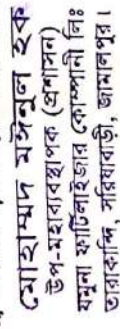 মোহাম্মদ মঈনুল হক
উপ-মহাব্যবস্থাপক (প্রশাসন)
যমুনা ফার্টিলাইজার কোম্পানী লিঃ
তারাকান্দি, সরিষাবাড়ী, জামালপুর।